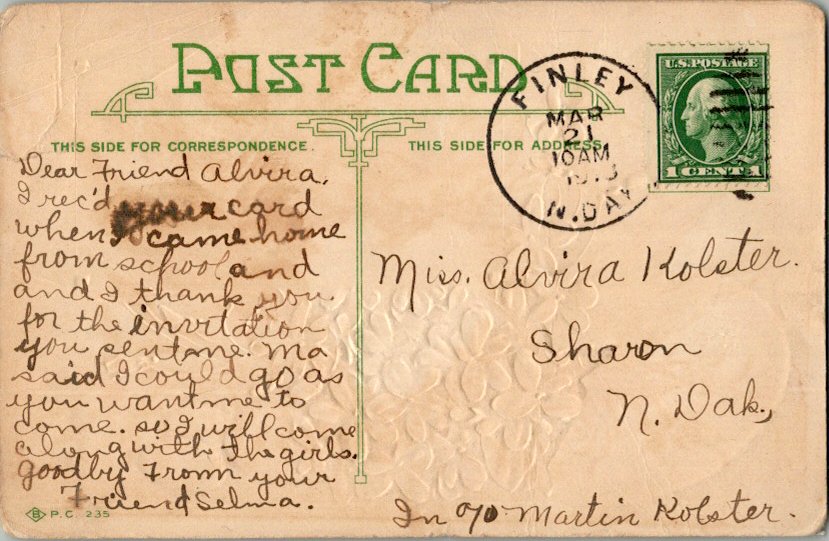 POST CARD
THIS SIDE FOR CORRESPONDENCE.
THIS SIDE FOR ADDRESS.
FINLEY
MAR
21
10AM
N.DAK
U.S.POSTAGE
1 CENTS 1
Dear Friend Alvira,
I rec'd your card
when I came home
from school and
and I thank you
for the invitation
you sent me. Ma
said I could go as
you want me to
come. so I will come
along with the girls.
goodby From your
Friend Selma.
Miss. Alvira Kolster.
Sharon
N. Dak,
In c/o Martin Kolster.
B P.C. 235